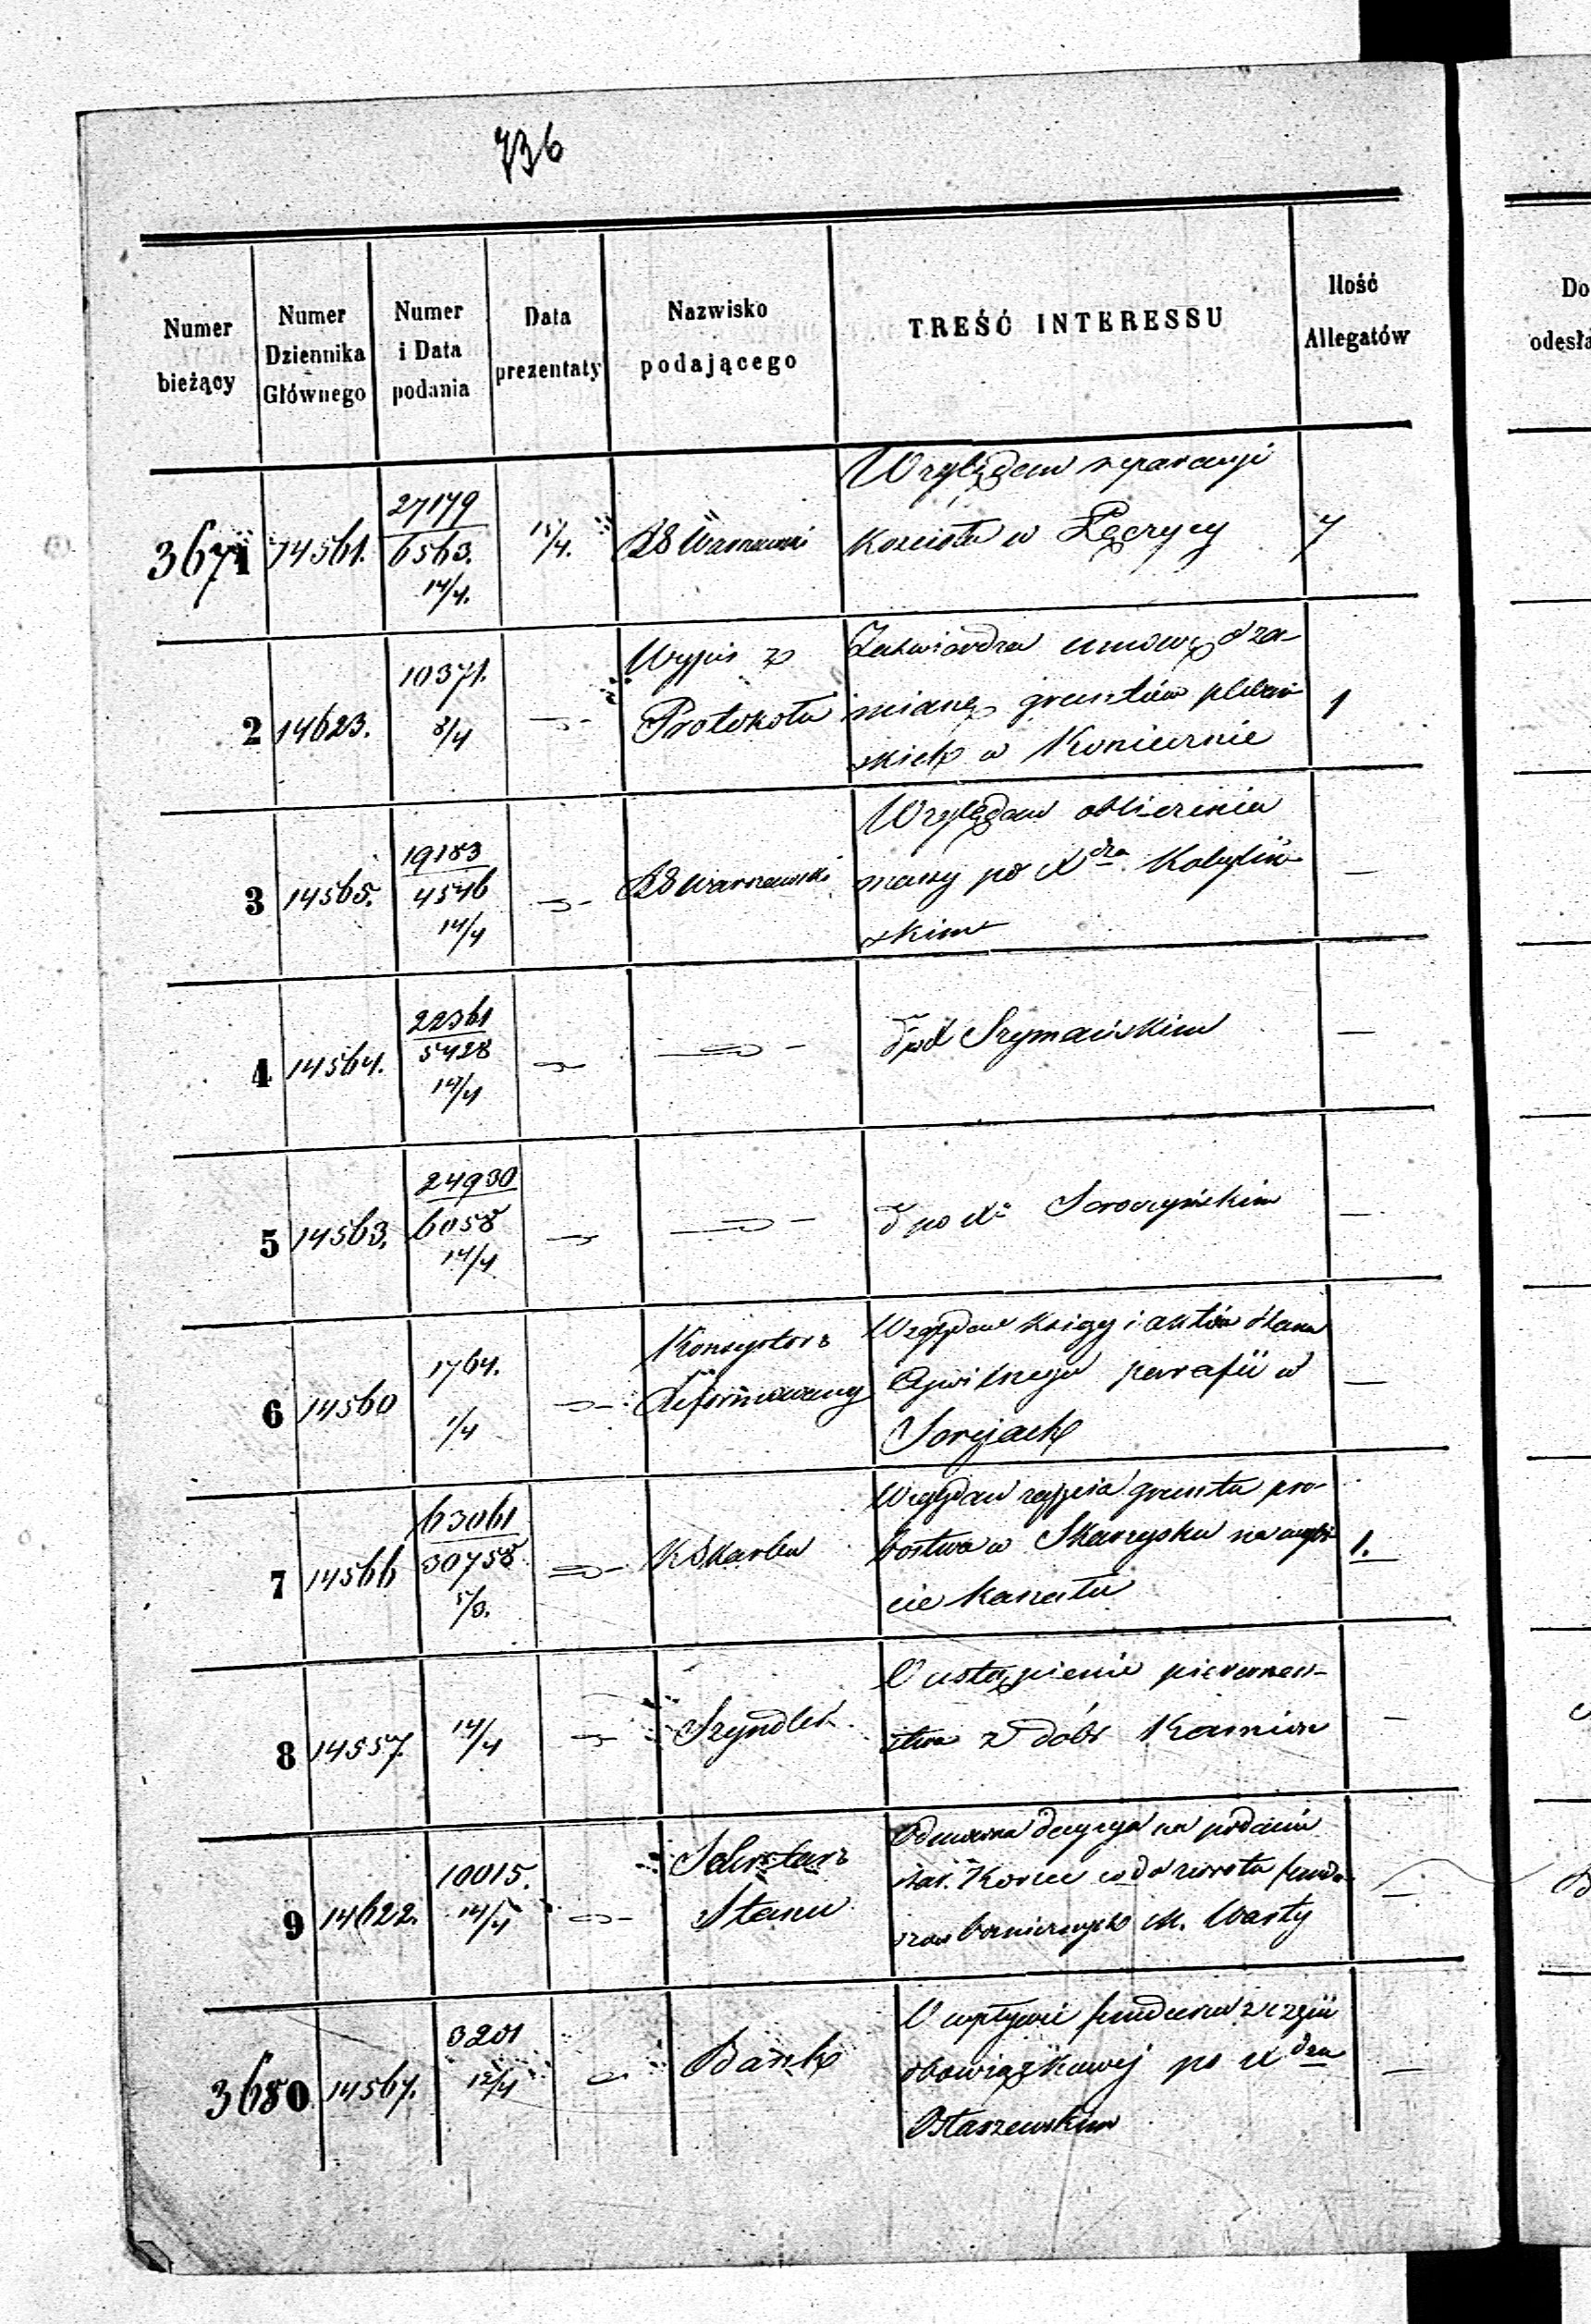 736
Numer bieżący
Numer Dziennika Głównego
Numer i Data podania
Data prezentaty
Nazwisko podającego
TREŚĆ INTERESSU
Ilość Allegatów
Do
odesła
3671 14561. 27179 / 6563. 14/4. 15/4. Względem reparacyi
Kościoła w Łęczycy 7
2 14623. 10371. 8/4 Wypis z Protokołu
Zatwierdza umowę o za-
mianę gruntów plebań
skich w Koniecznie 1
3 14565. 19183 / 4546 14/4 RG Warszawski
Względem obliczenia
massy po X Kobyliń
skim —
4 14564. 22361 / 5428 14/4 Szymańskim —
5 14563. 24930 / 6058 14/4 po X Soroczyńskim —
6 14560 1764. 1/4 Konsystorz Reformowany
Względem księgi i aktów Stanu
Cywilnego parafii w
Serejach —
7 14566 63061 / 30758 5/3. K Skarbu
Względem zajęcia gruntu pro-
bostwa w Skarżysku na
cie kanału 1.
8 14557. 14/4 Szyndler
O ustąpienie pierwszeń-
stwa z dóbr Kamień —
9 14622. 10015. 14/4 Sekretarz Stanu
Odmowna decyzya na podanie
M. Warty —
3680 14567. 3201 12/4 Bank
O wpływie funduszu z części
obowiązkowej po X
Ostaszewskim —